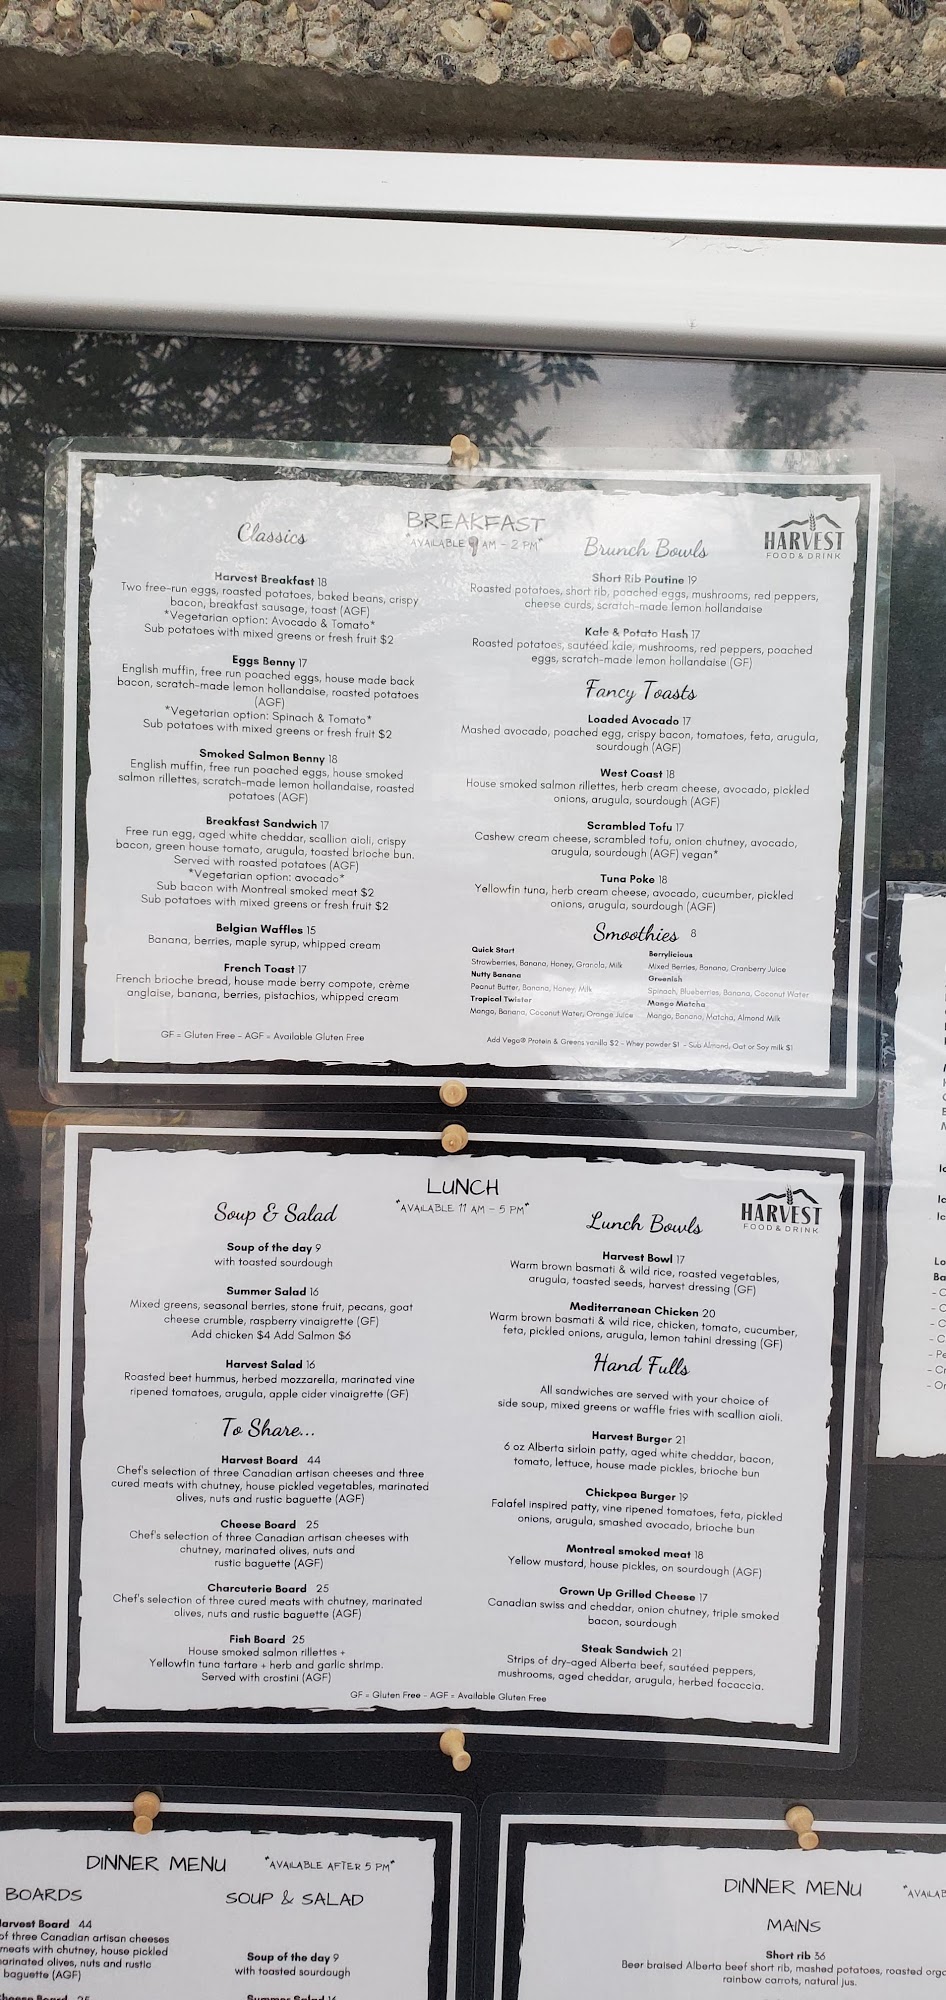 BREAKFAST
"AVAILABLE 9 AM - 2 PM"
HARVEST
FOOD & DRINK
Classics
Harvest Breakfast 18
Two free-run eggs, roasted potatoes, baked beans, crispy
bacon, breakfast sausage, toast (AGF)
*Vegetarian option: Avocado & Tomato*
Sub potatoes with mixed greens or fresh fruit $2
Eggs Benny 17
English muffin, free run poached eggs, house made back
bacon, scratch-made lemon hollandaise, roasted potatoes
(AGF)
*Vegetarian option: Spinach & Tomato*
Sub potatoes with mixed greens or fresh fruit $2
Smoked Salmon Benny 18
English muffin, free run poached eggs, house smoked
salmon rillettes, scratch-made lemon hollandaise, roasted
potatoes (AGF)
Breakfast Sandwich 17
Free run egg, aged white cheddar, scallion aioli, crispy
bacon, green house tomato, arugula, toasted brioche bun.
Served with roasted potatoes (AGF)
*Vegetarian option: avocado*
Sub bacon with Montreal smoked meat $2
Sub potatoes with mixed greens or fresh fruit $2
Belgian Waffles 15
Banana, berries, maple syrup, whipped cream
French Toast 17
French brioche bread, house made berry compote, crème
anglaise, banana, berries, pistachios, whipped cream
GF = Gluten Free - AGF = Available Gluten Free
Brunch Bowls
Short Rib Poutine 19
Roasted potatoes, short rib, poached eggs, mushrooms, red peppers,
cheese curds, scratch-made lemon hollandaise
Kale & Potato Hash 17
Roasted potatoes, sautéed kale, mushrooms, red peppers, poached
eggs, scratch-made lemon hollandaise (GF)
Fancy Toasts
Loaded Avocado 17
Mashed avocado, poached egg, crispy bacon, tomatoes, feta, arugula,
sourdough (AGF)
West Coast 18
House smoked salmon rillettes, herb cream cheese, avocado, pickled
onions, arugula, sourdough (AGF)
Scrambled Tofu 17
Cashew cream cheese, scrambled tofu, onion chutney, avocado,
arugula, sourdough (AGF) vegan*
Tuna Poke 18
Yellowfin tuna, herb cream cheese, avocado, cucumber, pickled
onions, arugula, sourdough (AGF)
Smoothies 8
Quick Start
Strawberries, Banana, Honey, Granola, Milk
Nutty Banana
Peanut Butter, Banana, Honey, Milk
Tropical Twister
Mango, Banana, Coconut Water, Orange Juice
Berrylicious
Mixed Berries, Banana, Cranberry Juice
Greenish
Spinach, Blueberries, Banana, Coconut Water
Mango Matcha
Mango, Banana, Matcha, Almond Milk
Add Vega® Protein & Greens vanilla $2 - Whey powder $1 - Sub Almond, Oat or Soy milk $1
LUNCH
"AVAILABLE 11 AM - 5 PM"
HARVEST
FOOD & DRINK
Soup & Salad
Soup of the day 9
with toasted sourdough
Summer Salad 16
Mixed greens, seasonal berries, stone fruit, pecans, goat
cheese crumble, raspberry vinaigrette (GF)
Add chicken $4 Add Salmon $6
Harvest Salad 16
Roasted beet hummus, herbed mozzarella, marinated vine
ripened tomatoes, arugula, apple cider vinaigrette (GF)
To Share...
Harvest Board 44
Chef's selection of three Canadian artisan cheeses and three
cured meats with chutney, house pickled vegetables, marinated
olives, nuts and rustic baguette (AGF)
Cheese Board 25
Chef's selection of three Canadian artisan cheeses with
chutney, marinated olives, nuts and
rustic baguette (AGF)
Charcuterie Board 25
Chef's selection of three cured meats with chutney, marinated
olives, nuts and rustic baguette (AGF)
Fish Board 25
House smoked salmon rillettes +
Yellowfin tuna tartare + herb and garlic shrimp.
Served with crostini (AGF)
Lunch Bowls
Harvest Bowl 17
Warm brown basmati & wild rice, roasted vegetables,
arugula, toasted seeds, harvest dressing (GF)
Mediterranean Chicken 20
Warm brown basmati & wild rice, chicken, tomato, cucumber,
feta, pickled onions, arugula, lemon tahini dressing (GF)
Hand Fulls
All sandwiches are served with your choice of
side soup, mixed greens or waffle fries with scallion aioli.
Harvest Burger 21
6 oz Alberta sirloin patty, aged white cheddar, bacon,
tomato, lettuce, house made pickles, brioche bun
Chickpea Burger 19
Falafel inspired patty, vine ripened tomatoes, feta, pickled
onions, arugula, smashed avocado, brioche bun
Montreal smoked meat 18
Yellow mustard, house pickles, on sourdough (AGF)
Grown Up Grilled Cheese 17
Canadian swiss and cheddar, onion chutney, triple smoked
bacon, sourdough
Steak Sandwich 21
Strips of dry-aged Alberta beef, sautéed peppers,
mushrooms, aged cheddar, arugula, herbed focaccia.
GF = Gluten Free - AGF = Available Gluten Free
DINNER MENU "AVAILABLE AFTER 5 PM"
BOARDS
Harvest Board 44
of three Canadian artisan cheeses
meats with chutney, house pickled
marinated olives, nuts and rustic
baguette (AGF)
Cheese Board 25
SOUP & SALAD
Soup of the day 9
with toasted sourdough
Summer Salad 16
DINNER MENU
MAINS
Short rib 36
Beer braised Alberta beef short rib, mashed potatoes, roasted
rainbow carrots, natural jus.